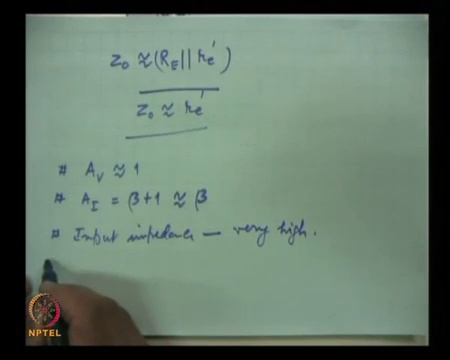 Z₀ ≈ (R_E || r'e)
Z₀ ≈ r'e
# A_V ≈ 1
# A_I = β+1 ≈ β
# Input impedance — very high.
NPTEL